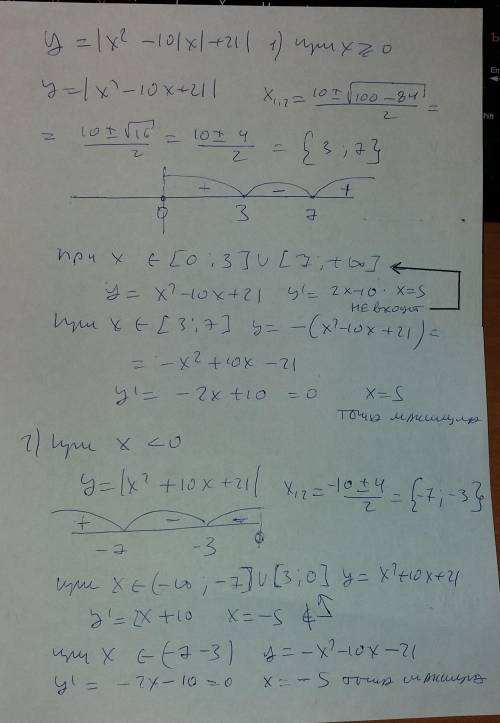 y = |x² - 10|x| + 21| 1) при x ⩾ 0
y = |x² - 10x + 21| x₁,₂ = (10 ± √(100 - 84))/2 =
= (10 ± √16)/2 = (10 ± 4)/2 = {3 ; 7}
+ - +
0 3 7
при x ∈ [0 ; 3] ∪ [7 ; +∞]
y = x² - 10x + 21 y' = 2x - 10 · x = 5
НЕ ВХОДИТ
при x ∈ [3 ; 7] y = -(x² - 10x + 21) =
= -x² + 10x - 21
y' = -2x + 10 = 0 x = 5
точка максимума
2) при x < 0
y = |x² + 10x + 21| x₁,₂ = (-10 ± 4)/2 = {-7 ; -3}
+ - +
-7 -3 0
при x ∈ (-∞ ; -7] ∪ [3 ; 0] y = x² + 10x + 21
y' = 2x + 10 x = -5 ∉
при x ∈ (-7 -3) y = -x² - 10x - 21
y' = -2x - 10 = 0 x = -5 точка максимума